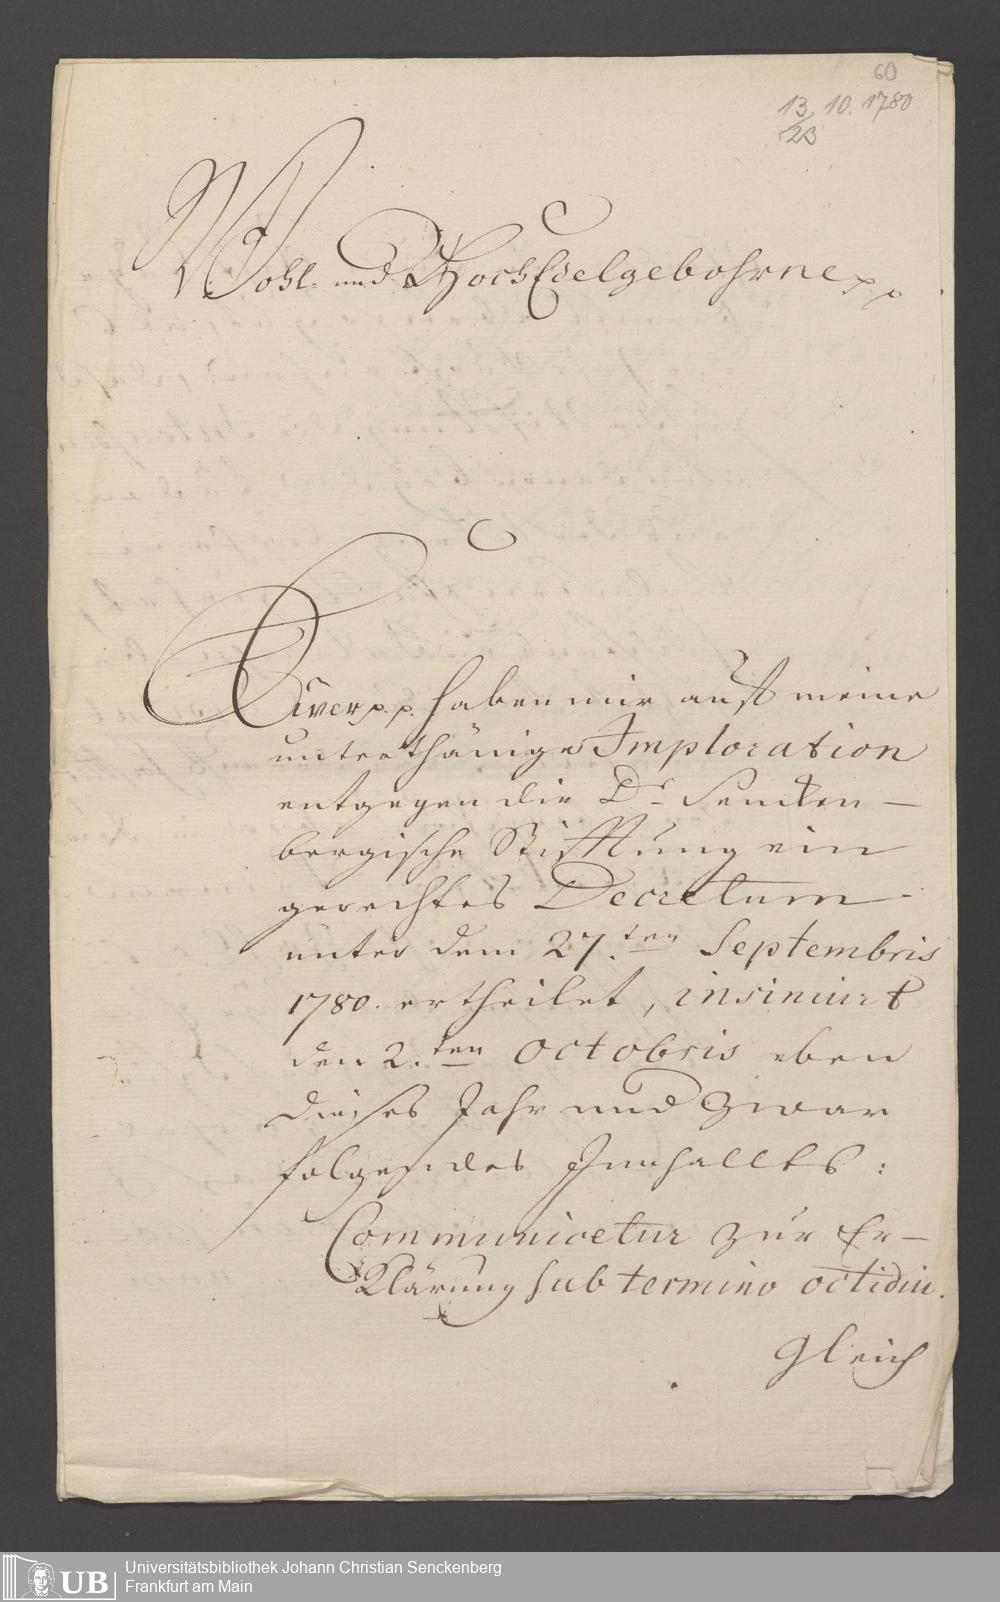 60
13/23 10. 1780
Wohl- und HochEdelgebohrne pp
Euer p. p. haben mir auf meine
unterthänige Imploration
entgegen die Dr. Sencken-
bergische Stifftung ein
gerechtes Decretum
unter dem 27.ten Septembris
1780. ertheilet, insinuirt
den 2.ten Octobris eben
dieses Jahr und zwar
folgendes Innhallts:
Communicetur zur Er-
klärung sub termino octidui.
Gleich
Universitätsbibliothek Johann Christian Senckenberg
Frankfurt am Main
UB